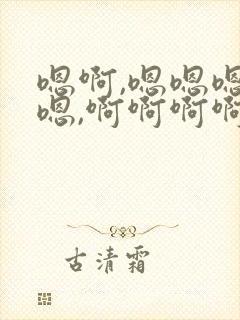 嗯啊,嗯嗯嗯
嗯,啊啊啊啊
古清霜